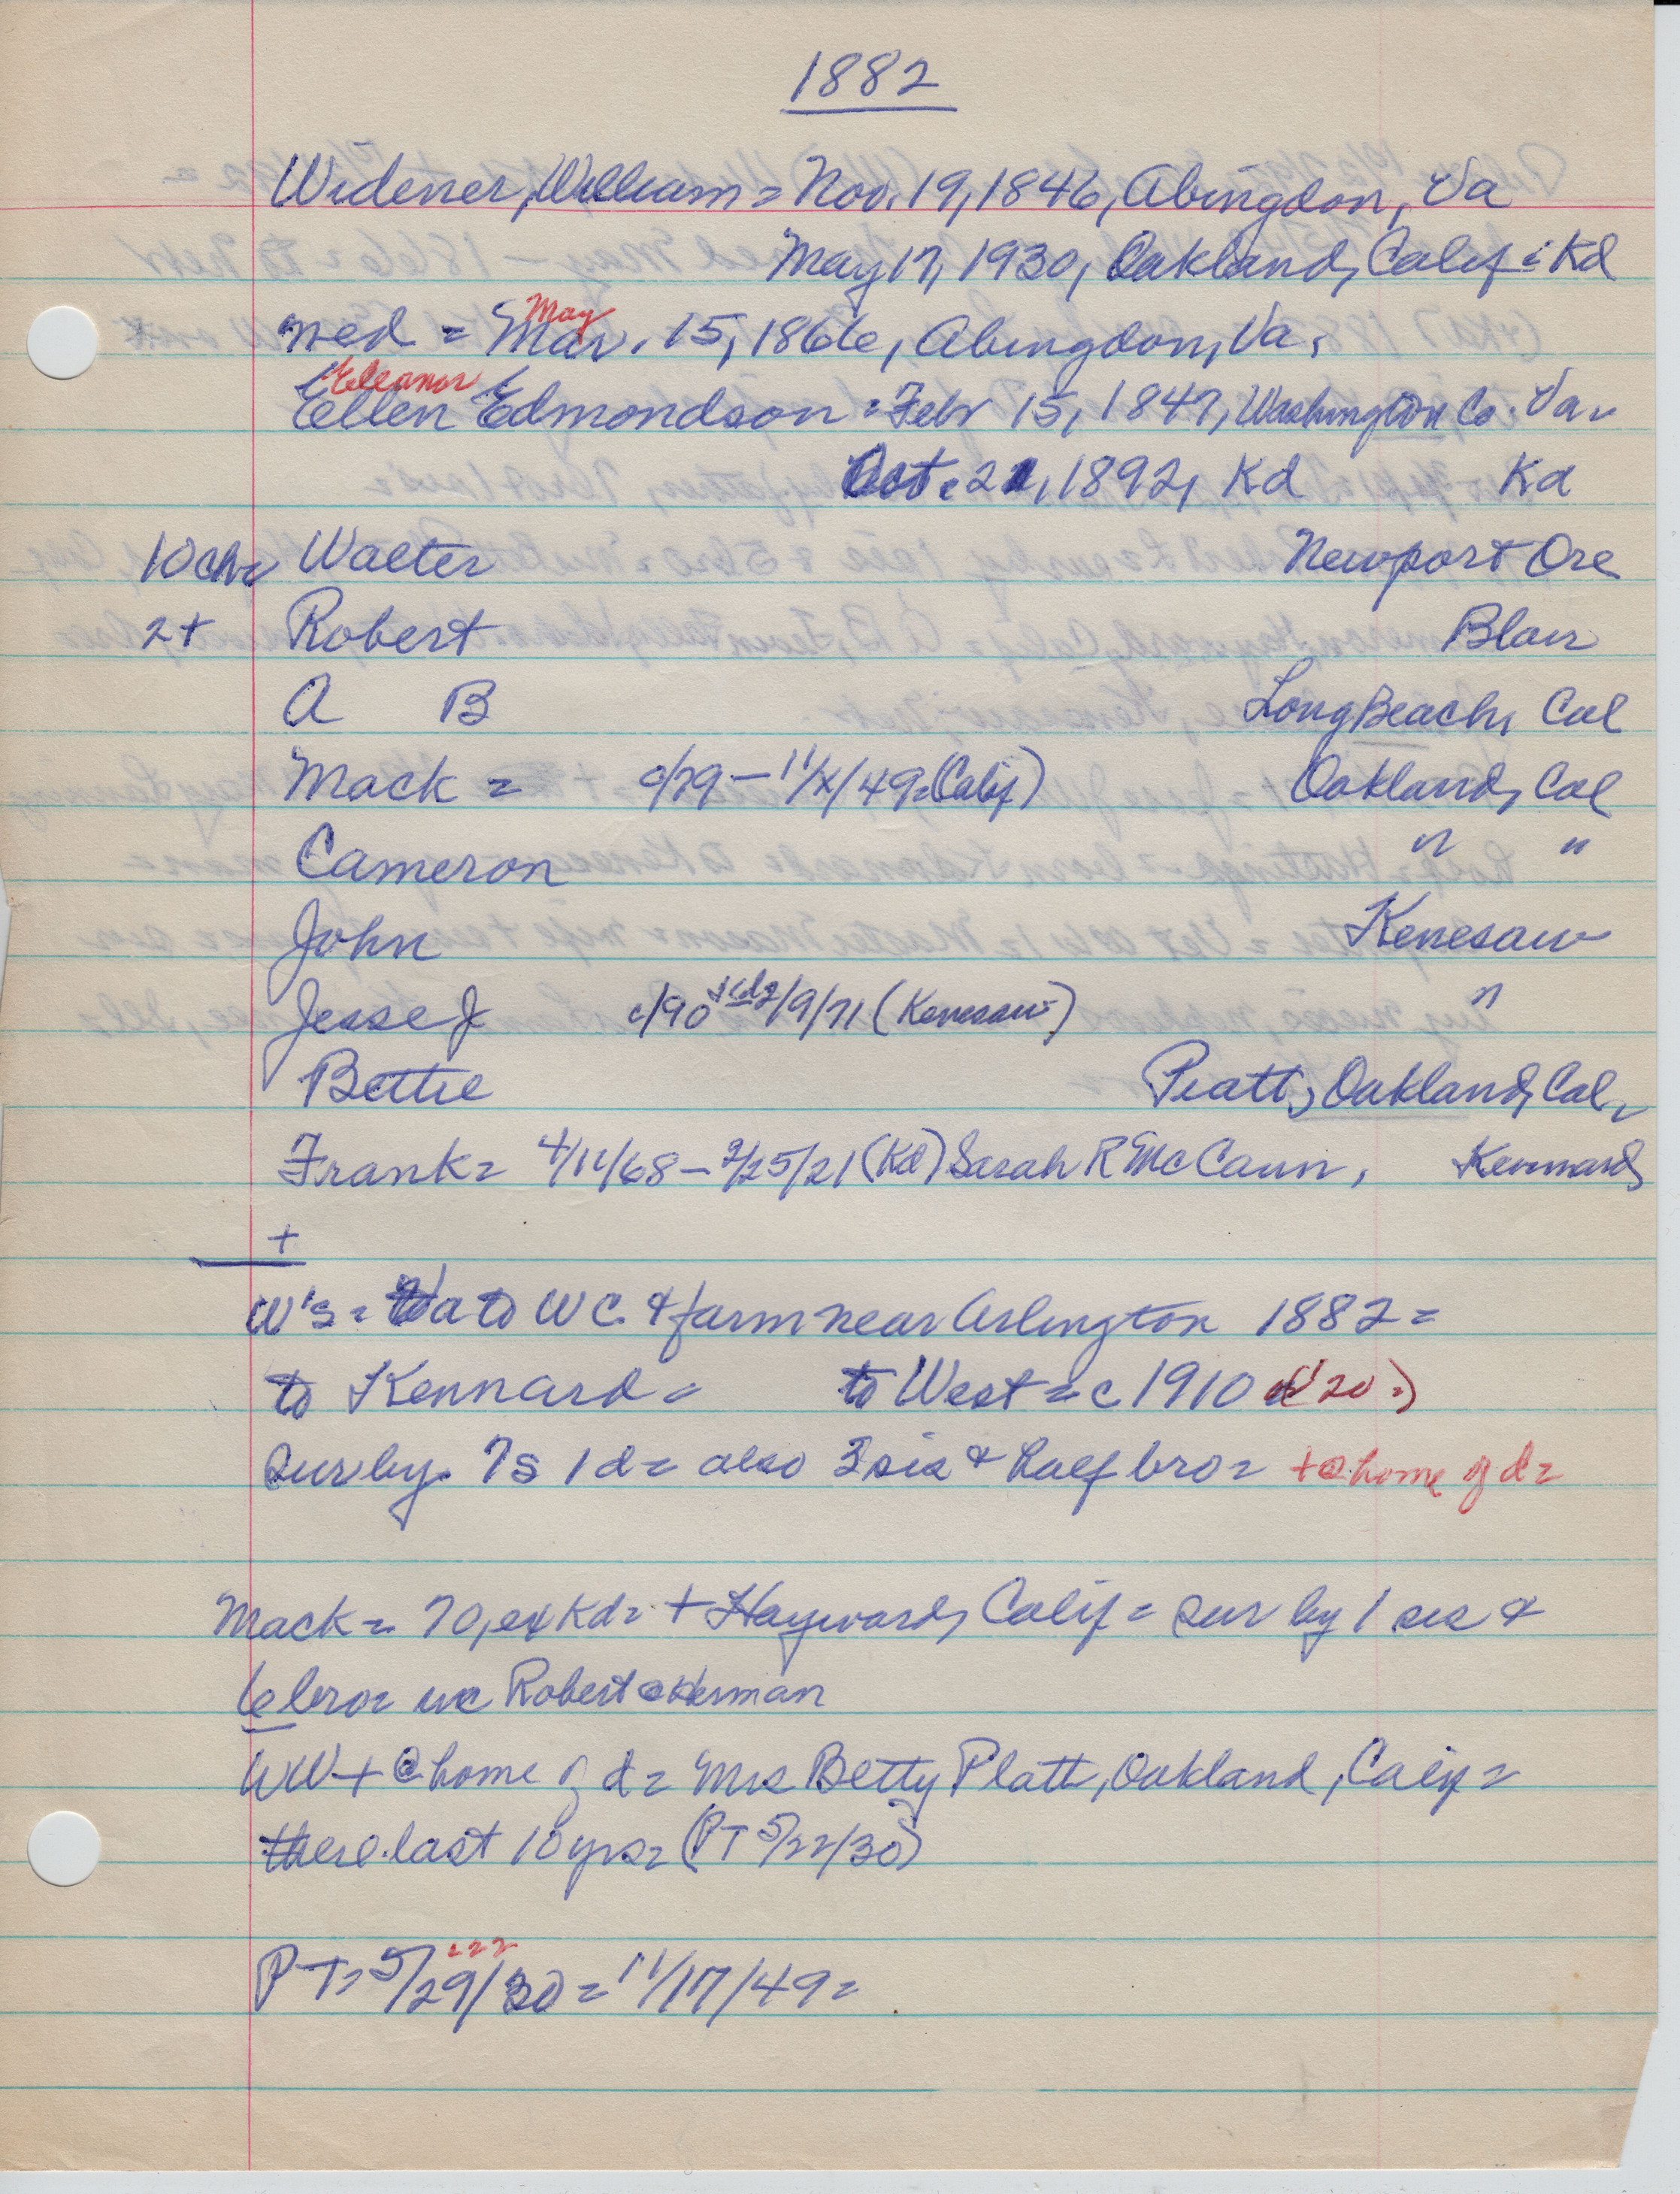 1882
Widener, William = Nov. 19, 1846, Abingdon, Va
May 17, 1930, Oakland, Calif = Kd
May
med = Mar. 15, 1866, Abingdon, Va.
Eleanor
Ellen Edmondson = Febr 15, 1847, Washington Co. Va.
Oct. 21, 1892, Kd Kd
10 ch = Walter Newport Ore
2+ Robert Blair
A B Long Beach, Cal
Mack = c/79 – 11/x/49 = (Calif) Oakland, Cal
Cameron " "
John Kenesaw
Jesse J c/90 2/9/71 (Kenesaw) "
Bettie Piatt, Oakland, Cal.
Frank = 4/11/68 – 2/25/21 (Kd) Sarah R McCann, Kennard
+
W's = Va to WC. & farm near Arlington 1882 =
to Kennard = to West = c 1910 ('20 =)
Sur by. 7s 1d = also 3 sis & half bro = + @ home of d =
Mack = 70, ex Kd = + Hayward, Calif = sur by 1 sis &
6 bro = inc Robert & Herman
WW + @ home of d = Mrs Betty Platt, Oakland, Calif =
there last 10 yrs = (PT 5/22/30)
222
PT = 5/29/30 = 11/17/49 =